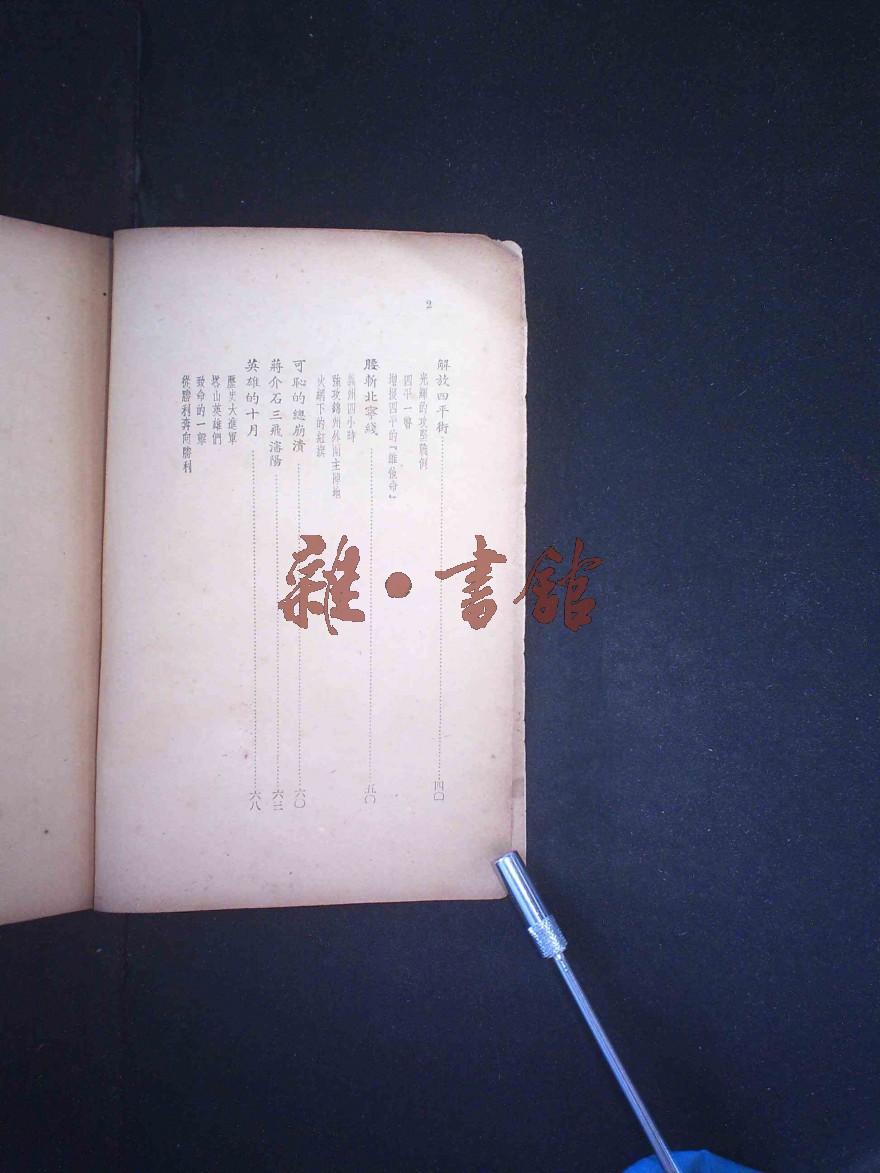 2
解放四平街 四〇
光輝的攻堅戰例
四平一瞥
增援四平的『維他命』
腰斬北寧綫 五〇
義州四小時
強攻錦州外圍主陣地
火網下的紅旗
可恥的總崩潰 六〇
蔣介石三飛瀋陽 六三
英雄的十月 六八
歷史大進軍
塔山英雄們
致命的一擊
從勝利奔向勝利
雜·書館